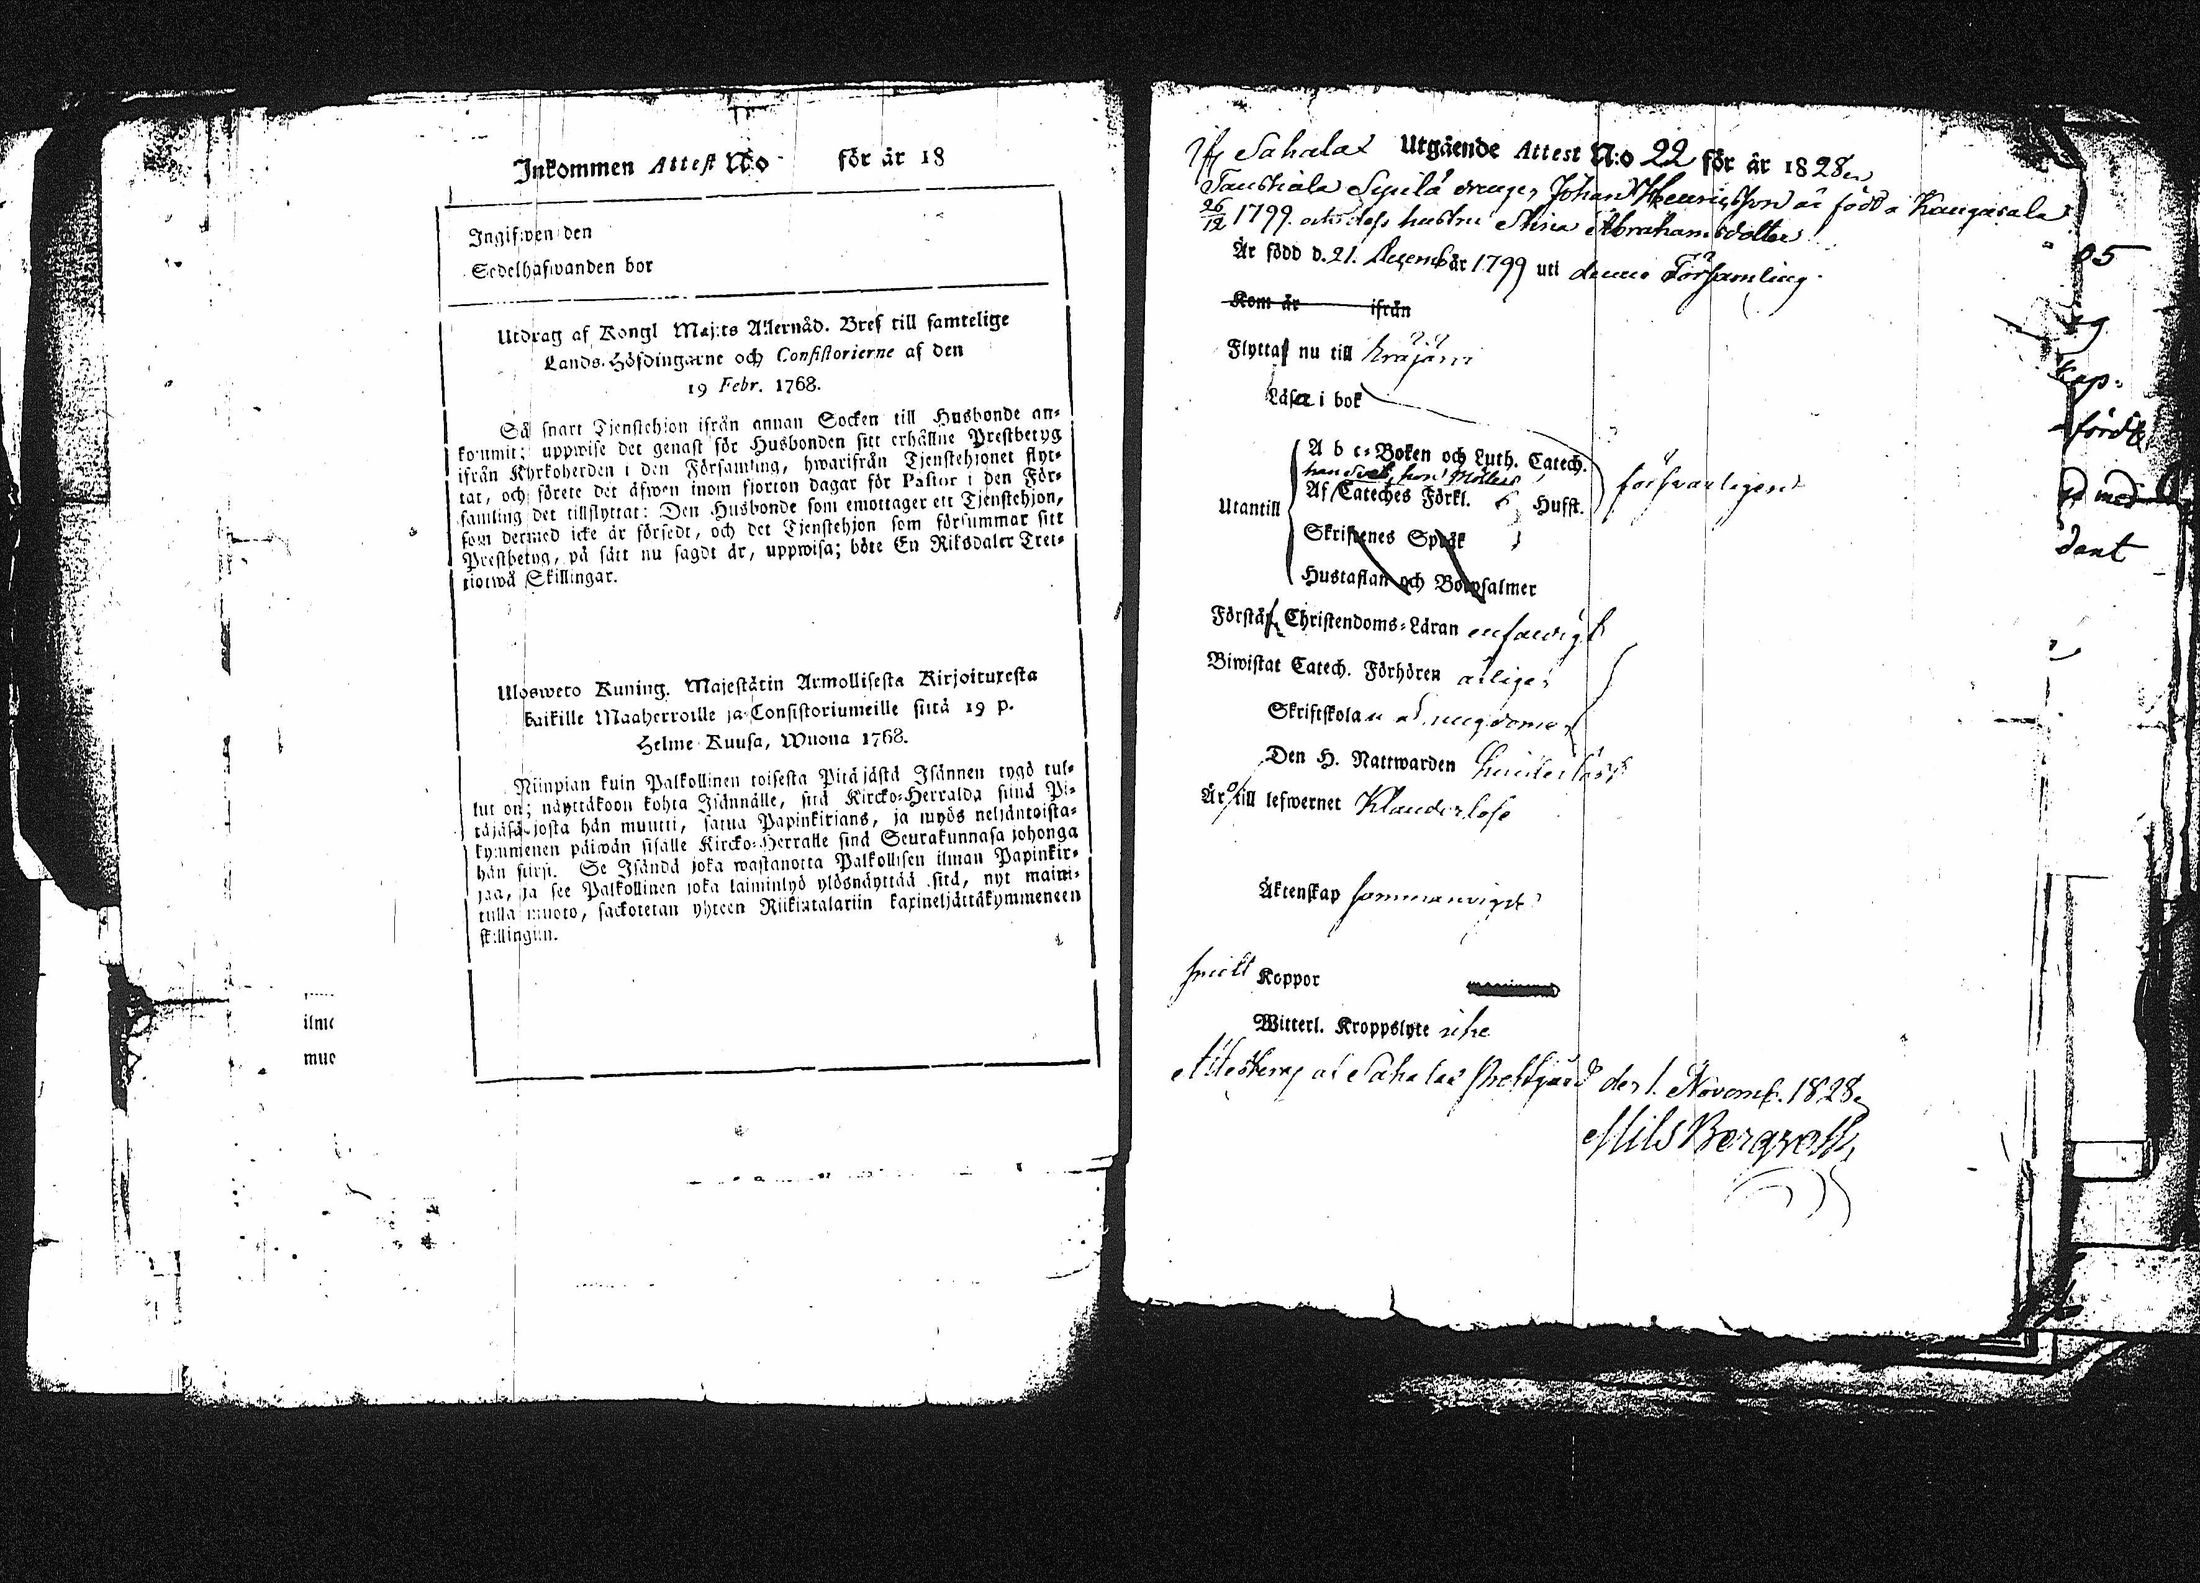 Inkommen Attest N:o för är 18
Ingifwen den
Sedelhafwanden bor
Utdrag af Kongl Maj:ts Allernåd. Bref till samtelige
Lands-Höfdingarne och Consistorierne af den
19 Febr. 1768.
Så snart Tjenstehjon ifrån annan Socken till Husbonde an-
kommit; uppwise det genast för Husbonden sitt erhållne Prestbetyg
ifrån Kyrkoherden i den Församling, hwarifrån Tjenstehjonet flyt-
tat, och förete det äfwen inom fjorton dagar för Pastor i den För-
samling det tillflyttat: Den Husbonde som emottager ett Tjenstehjon,
som dermed icke är försedt, och det Tjenstehjon som försummar sitt
Prestbetyg, på sätt nu sagdt är, uppwisa; böte En Riksdaler Tret-
tiotwå Skillingar.
Ulosweto Kuning. Majestätin Armollisesta Kirjoituxesta
kaikille Maaherroille ja Consistoriumeille siitä 19 p.
Helme Kuusa, Wuona 1768.
Niinpian kuin Palkollinen toisesta Pitäjästä Isännen tygö tul-
lut on; näyttäkoon kohta Isännälle, sitä Kircko-Herralda siinä Pi-
täjäsä josta hän muutti, saatua Papinkirjans, ja myös neljäntoista-
kymmenen päiwän sisälle Kircko-Herralle siinä Seurakunnasa johonga
hän siirsi. Se Isändä joka wastanotta Palkollisen ilman Papinkir-
jaa, ja see Palkollinen joka laiminlyö ylösnäyttää sitä, nyt maini-
tulla muoto, sackotetan yhteen Riikintalariin kaxineljättäkymmeneen
skillingiin.
ilme
mue
Sahalax Utgående Attest N:o 22 för är 1828
Sepilä drängen Johan Henricsson är född i Kangasala
26/12 1799. och dess hustru Stina Abrahamsdotter
Är född d. 21. Decembär 1799 uti denne Församling.
Kom är ifrån
Flyttaf nu till
Läsa i bok
A b c-Boken och Luth. Catech.
han Sveb. hon Möllers
Utantill Af Cateches Förkl. Husst. försvarligen
Skriftenes Språk
Hustaflan och Botpsalmer
Förstå Christendoms-Läran enfaldigt
Biwistat Catech. Förhören årligen
Skriftskolan
Den H. Nattwarden
Är till lefwernet Klanderlöse
Äktenskap sammanvigde
Koppor
Witterl. Kroppslyte icke
Attesteras af Sahalax Prestgård den 1. Novemb. 1828
Nils Bergroth
05